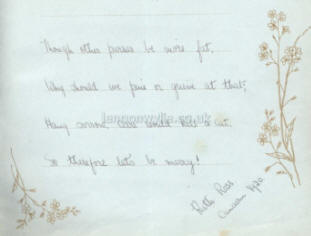 Though other purses be more fat,
Why should we pine or grieve at that;
Hang sorrow, care would kill a cat,
So therefore let's be merry!
Ruth Ross.